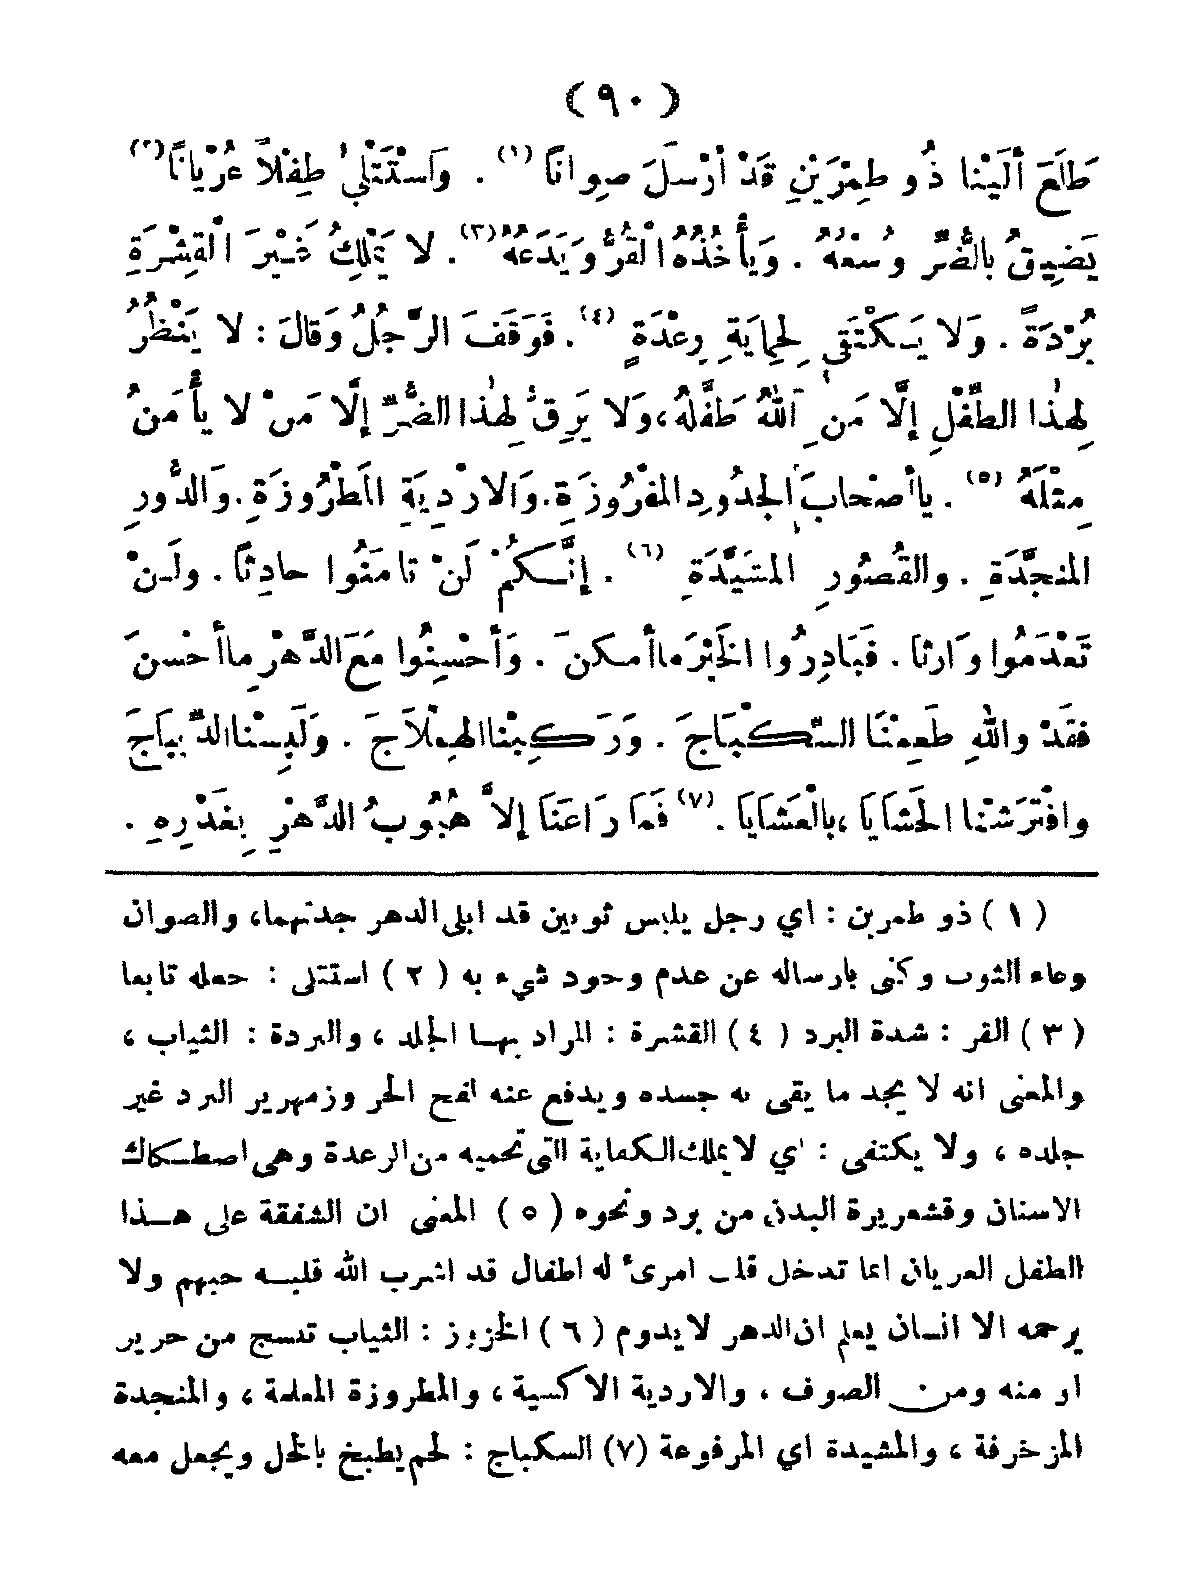 ( ٩٠ )
طَلَعَ أَلَيْنا ذُو طِمْرَيْنِ قَدْ أَرْسَلَ صِوانًا (١) . وَاسْتَتْلىٰ طِفْلاً عُرْيانًا (٢)
يَضِيقُ بالضُّرِّ وُسْعُهُ . وَيأْخُذُهُ الْقُرُّ وَيَدَعُهُ (٣) . لا يَمْلِكُ غَيْرَ الْقِشْرَةِ
بُرْدَةً . وَلا يَكْتَفي لِحِمايَةِ رِعْدَةٍ (٤) . فَوَقَفَ الرَّجُلُ وَقالَ : لا يَنْظُرُ
لِهٰذا الطِّفْلِ إِلَّا مَنِ اللهُ طَفَّلَهُ ، وَلا يَرِقُّ لِهٰذا الضُّرِّ إِلَّا مَنْ لا يأْمَنُ
مِثْلَهُ (٥) . يا أصْحابَ الجدُودِ المفْرُوزَةِ . وَالاَرْدِيَةِ المَطْرُوزَةِ . وَالدُّورِ
المنجَّدَةِ . والقُصُورِ المشَيَّدَةِ (٦) . إِنَّكُمْ لَنْ تامَنُوا حادِثًا . ولَنْ
تَعْدَمُوا وَارِثا . فَبَادِرُوا الخَيْرَ ما أَمكنَ . وَأَحْسِنُوا مَعَ الدَّهْرِ ما أَحْسنَ
فقَدْ واللهِ طَعِمْنَا السِّكْبَاجَ . وَرَكِبْنا الهِمْلاَجَ . وَلَبِسْنا الدِّيباَجَ
وافْتَرَشْنا الحَشايَا ، بالْعَشايَا (٧) . فَما رَاعَنَا إلاَّ هُبُوبُ الدَّهْرِ بِغَدْرِهِ .
( ١ ) ذو طمرين : اي رجل يلبس ثوبين قد ابلى الدهر جدتهما ، والصوان
وعاء الثوب وكنى بارساله عن عدم وجود شيء به ( ٢ ) استتلى : جعله تابعا
( ٣ ) القر : شدة البرد ( ٤ ) القشرة : المراد بها الجلد ، والبردة : الثياب ،
والمعنى انه لا يجد ما يقي به جسده ويدفع عنه لفح الحر وزمهرير البرد غير
جلده ، ولا يكتفى : اي لا يملك الكفاية التي تحميه من الرعدة وهى اصطكاك
الاسنان وقشعريرة البدن من برد ونحوه ( ٥ ) المعنى ان الشفقة على هذا
الطفل العريان انما تدخل قلب امرئ له اطفال قد اشرب الله قلبه حبهم ولا
يرحمه الا انسان يعلم ان الدهر لا يدوم ( ٦ ) الخزوز : الثياب تنسج من حرير
او منه ومن الصوف ، والاردية الاكسية ، والمطروزة المعلمة ، والمنجدة
المزخرفة ، والمشيدة اي المرفوعة (٧) السكباج : لحم يطبخ بالخل ويجعل معه